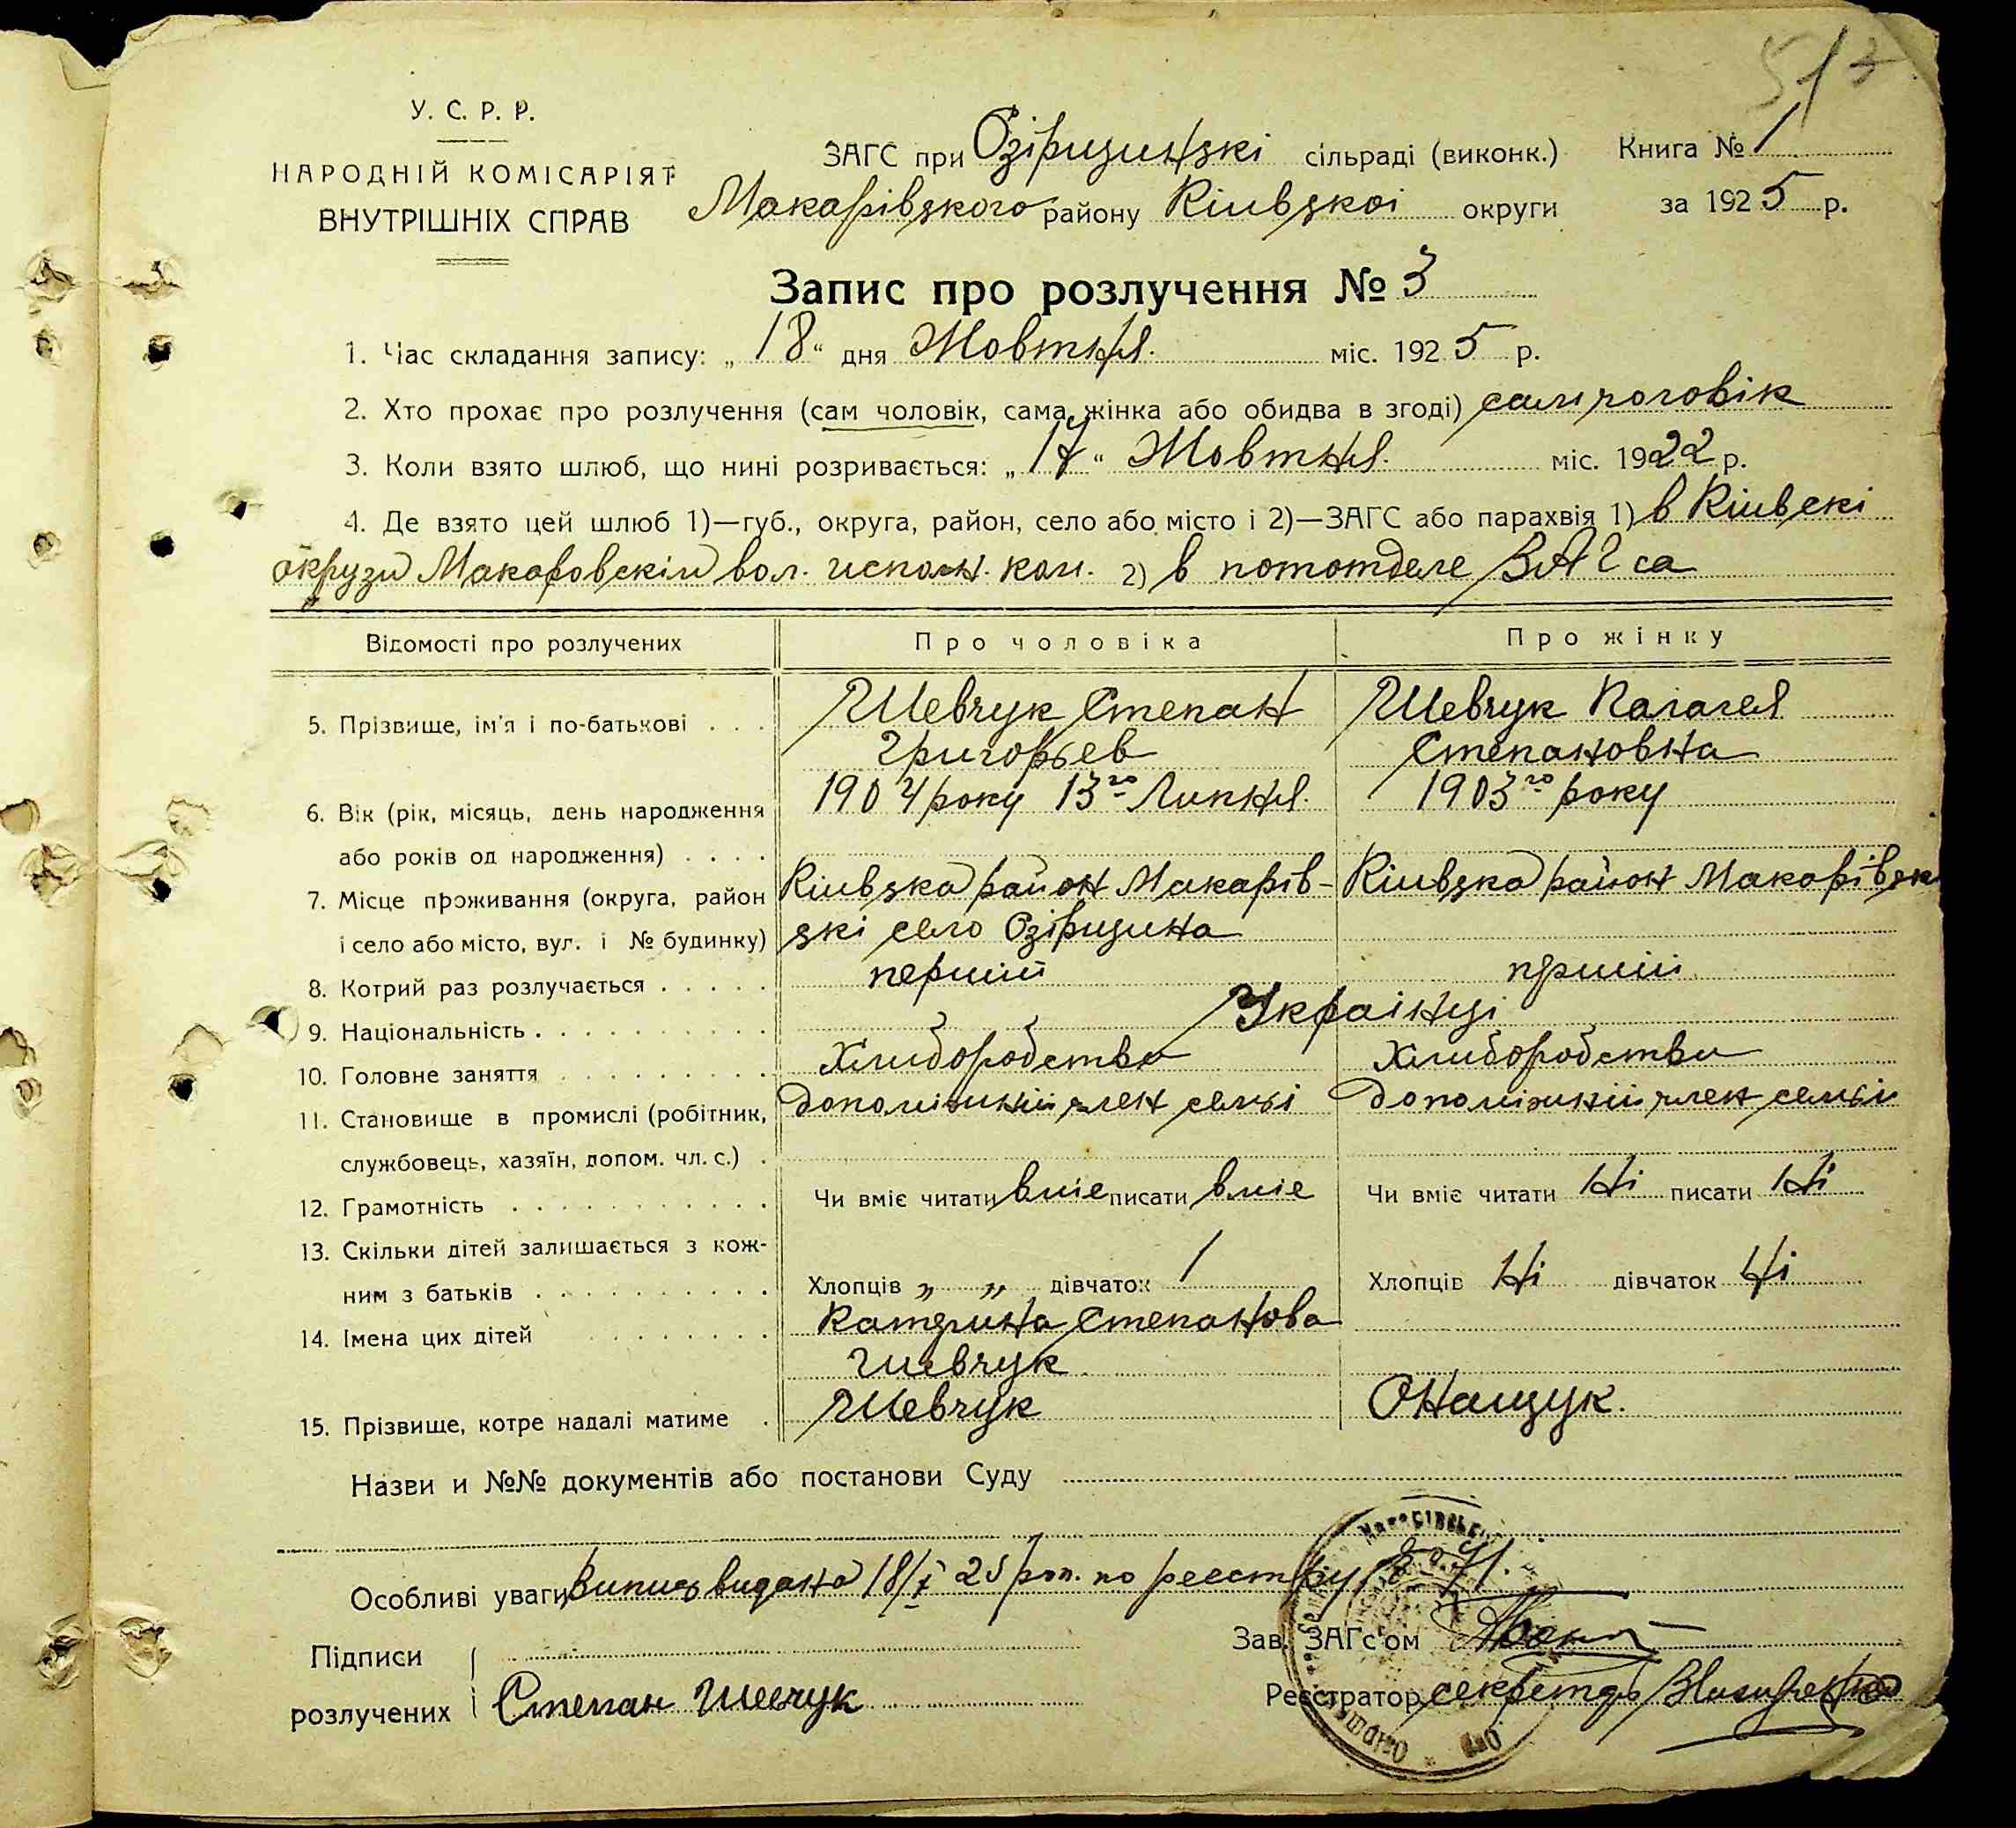 У. С. Р. Р.
НАРОДНІЙ КОМІСАРІЯТ
ВНУТРІШНІХ СПРАВ
ЗАГС при Озірщинські сільраді (виконк.) Книга № 1
Макарівського району Кіивськоі округи за 1925 р.
Запис про розлучення № 3
1. Час складання запису: „18“ дня Жовтня. міс. 1925 р.
2. Хто прохає про розлучення (сам чоловік, сама жінка або обидва в згоді) сам чоловік
3. Коли взято шлюб, що нині розривається: „17“ Жовтня. міс. 1922 р.
4. Де взято цей шлюб 1)—губ., округа, район, село або місто і 2)—ЗАГС або парахвія 1) в Кіивскі
окрузи Макаровскім вол. исполн. ком. 2) в пототделе ЗАГса
Відомості про розлучених Про чоловіка Про жінку
5. Прізвище, ім'я і по-батькові . . . Шевчук Степан Шевчук Палагея
Григорьев Степановна
6. Вік (рік, місяць, день народження 1904 року 13го Липня. 1903го року
або років од народження) . . . .
7. Місце проживання (округа, район Кіивска район Макарів- Кіивска район Макарівск
і село або місто, вул. і № будинку) скі село Озірщина
8. Котрий раз розлучається . . . . . перший прший
9. Національність . . . . . . . . . . Українці
10. Головне заняття . . . . . . . . . Хлиборобство Хлиборобство
11. Становище в промислі (робітник, Допоміжній член семьі Допоміжній член семьи
службовець, хазяїн, допом. чл. с.) .
12. Грамотність . . . . . . . . . . . Чи вміє читати вміе писати вміе Чи вміє читати Ні писати Ні
13. Скільки дітей залишається з кож-
ним з батьків . . . . . . . . . . Хлопців „ „ дівчаток 1 Хлопців Ні дівчаток Ні
14. Імена цих дітей . . . . . . . . Катерина Степанова
Шевчук
15. Прізвище, котре надалі матиме . Шевчук Онащук.
Назви и №№ документів або постанови Суду
Особливі уваги Випись видана 18/X 25 рок. по реестру
Підписи Зав. ЗАГс'ом
розлучених Степан Шевчук Реєстратор секретарь